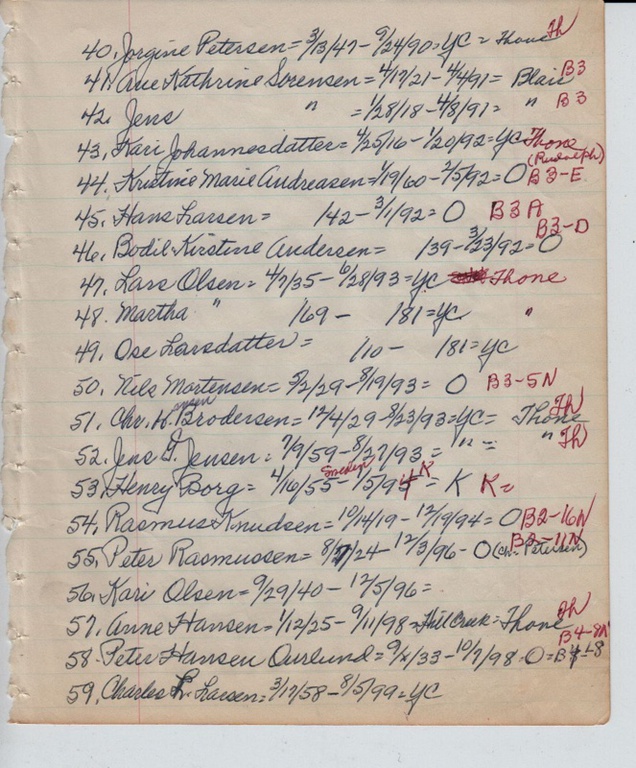 40. Jorgine Petersen = 3/13/47 - 9/24/90 = YC = Thone Th
41. Ane Kathrine Sorensen = 4/17/21 - 4/4/91 = Blair B3
42. Jens " = 1/28/18 - 4/8/91 = " B3
43. Kari Johannesdatter = 4/25/16 - 1/20/92 = YC Thone
44. Kristine Marie Andreasen = 1/19/60 - 2/5/92 = O (Rudolph) B3-E
45. Hans Larsen = /42 - 3/1/92 = O B3A
46. Bodil Kirstine Andersen = /39 - 3/23/92 = O B3-D
47. Lars Olsen = 4/7/35 - 6/28/93 = YC Thone
48. Martha " /69 - /81 = YC "
49. Ose Larsdatter = /10 - /81 = YC
50. Nils Mortensen = 5/2/29 - 8/19/93 = O B3-5N
51. Chr. H. Brodersen = 12/4/29 - 8/23/93 = YC = Thone Th
52. Jens J. Jensen = 7/9/59 - 8/27/93 = " = " Th
53. Henry Borg = 4/16/55 - 1/5/94 = K K =
54. Rasmus Knudsen = 10/14/19 - 12/19/94 = O B2-16N
55. Peter Rasmussen = 8/7/24 - 12/3/96 - O (Ch. Petersen) B2-11N
56. Kari Olsen = 9/29/40 - 12/5/96 =
57. Anne Hansen = 1/12/25 - 9/11/98 = Hill Creek = Thone Th
58. Peter Hansen Ourlund = 9/x/33 - 10/7/98 = O = B4-L8 B4-8N
59. Charles L. Larsen = 3/17/58 - 8/5/99 = YC